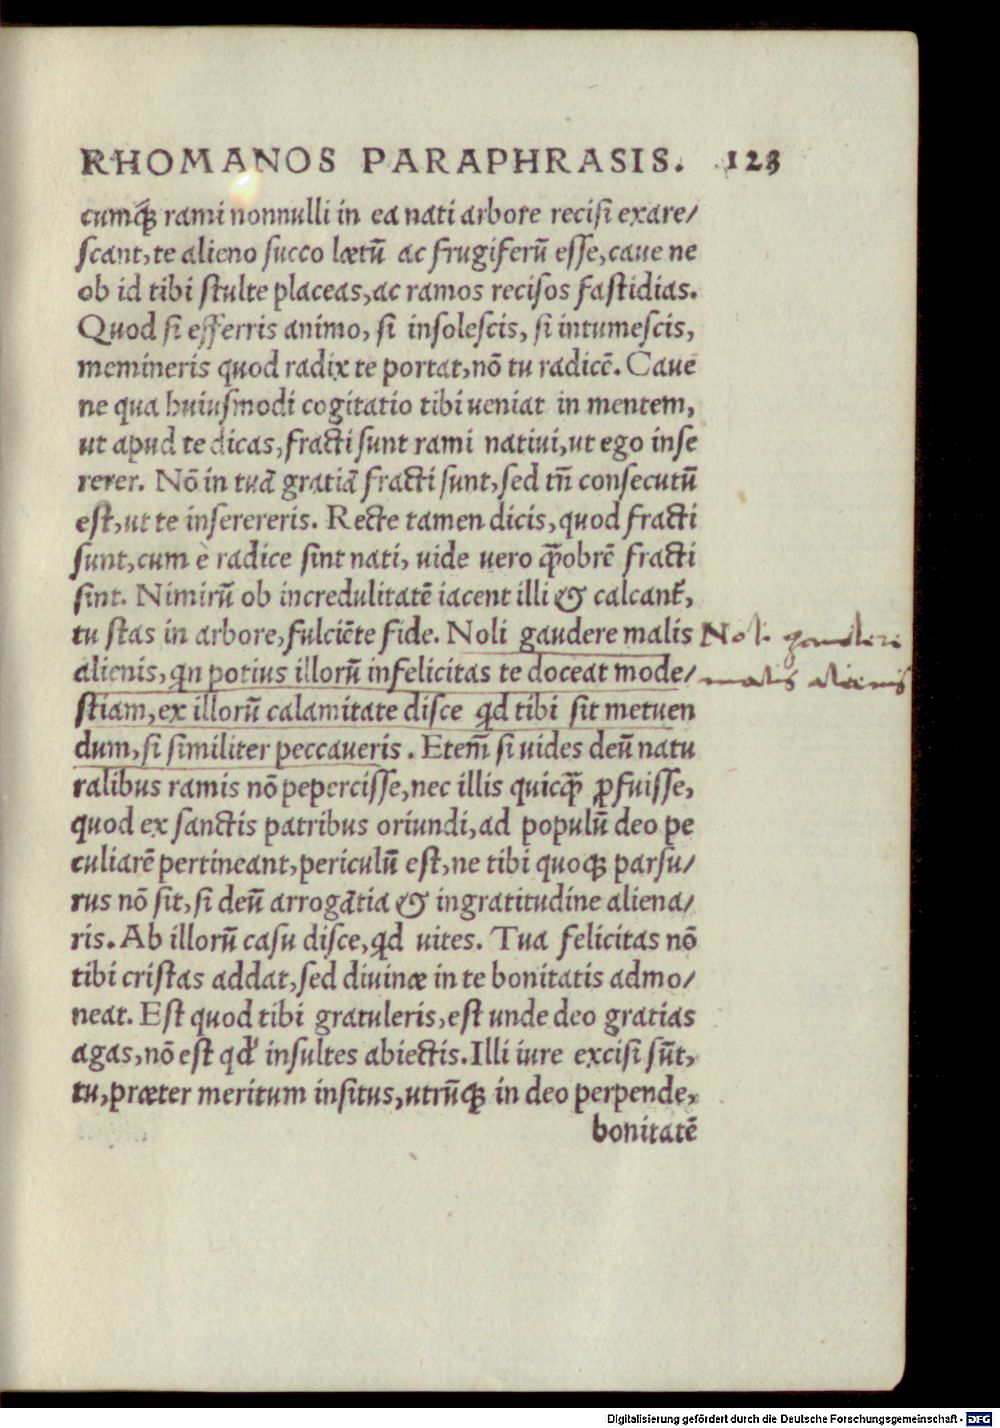 RHOMANOS PARAPHRASIS. 123
cumq́ꝫ rami nonnulli in ea nati arbore recisi exare/
scant, te alieno succo lætū ac frugiferū esse, caue ne
ob id tibi stulte placeas, ac ramos recisos fastidias.
Quod si efferris animo, si insolescis, si intumescis,
memineris quod radix te portat, nō tu radicē. Caue
ne qua huiusmodi cogitatio tibi ueniat in mentem,
ut apud te dicas, fracti sunt rami natiui, ut ego inse
rerer. Nō in tuā gratiā fracti sunt, sed tñ consecutū
est, ut te inserereris. Recte tamen dicis, quod fracti
sunt, cum è radice sint nati, uide uero q̄obrē fracti
sint. Nimirū ob incredulitatē iacent illi & calcant̃,
tu stas in arbore, fulciēte fide. Noli gaudere malis
alienis, qͥn potius illorū infelicitas te doceat mode/
stiam, ex illorū calamitate disce qͥd tibi sit metuen
dum, si similiter peccaueris. Etem̄ si uides deū natu
ralibus ramis nō pepercisse, nec illis quicq̄ ꝓfuisse,
quod ex sanctis patribus oriundi, ad populū deo pe
culiarē pertineant, periculū est, ne tibi quoqꝫ parsu/
rus nō sit, si deū arrogātia & ingratitudine aliena/
ris. Ab illorū casu disce, qͥd uites. Tua felicitas nō
tibi cristas addat, sed diuinæ in te bonitatis admo/
neat. Est quod tibi gratuleris, est unde deo gratias
agas, nō est qđ insultes abiectis. Illi iure excisi sūt,
tu, præter meritum insitus, utrūqꝫ in deo perpende,
bonitatē
Noli gaudere
malis alienis
Digitalisierung gefördert durch die Deutsche Forschungsgemeinschaft - DFG